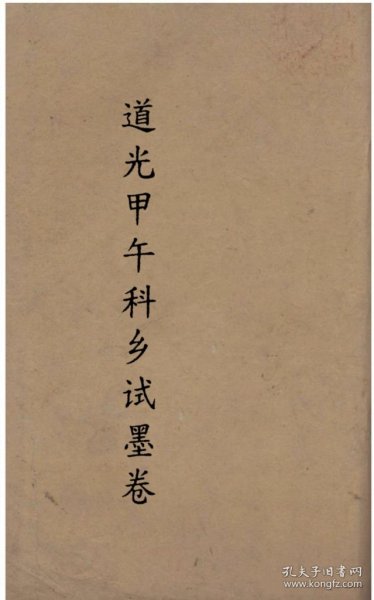 道光甲午科乡试墨卷
孔夫子旧书网
www.kongfz.com